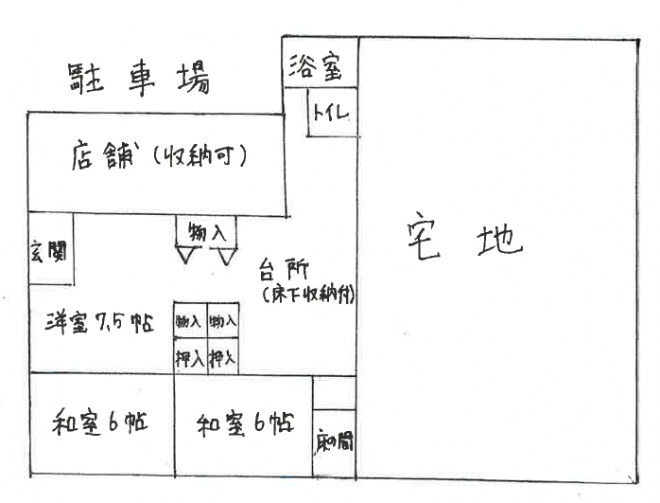 駐車場
浴室
トイレ
店舗(収納可)
物入
玄関
台所
(床下収納付)
宅地
洋室7.5帖
物入 物入
押入 押入
和室6帖
和室6帖
床の間